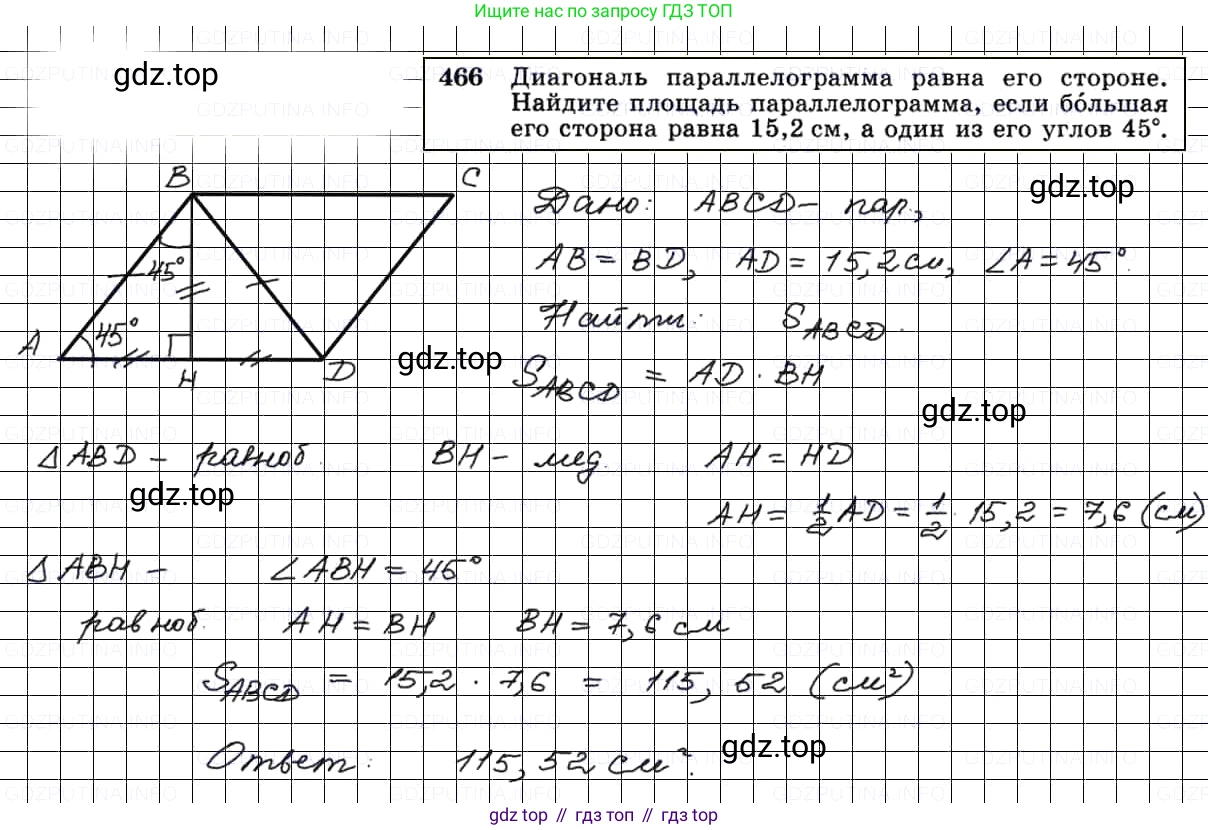 Ищите нас по запросу ГДЗ ТОП
gdz.top
466 Диагональ параллелограмма равна его стороне.
Найдите площадь параллелограмма, если бо́льшая
его сторона равна 15,2 см, а один из его углов 45°.
B C
45°
A 45°
H D
Дано: ABCD – пар.,
gdz.top
AB = BD, AD = 15,2 см, ∠A = 45°.
Найти: S_ABCD.
gdz.top
S_ABCD = AD · BH
gdz.top
△ABD – равноб. BH – мед. AH = HD
gdz.top
AH = 1/2 AD = 1/2 · 15,2 = 7,6 (см)
△ABH – ∠ABH = 45°
равноб. AH = BH BH = 7,6 см
S_ABCD = 15,2 · 7,6 = 115,52 (см²)
Ответ: 115,52 см².
gdz.top
gdz.top // гдз топ // гдз.top